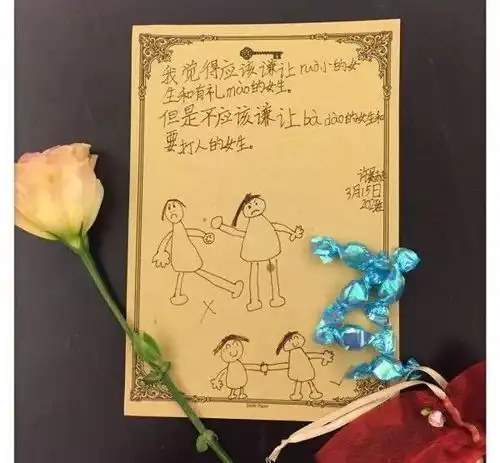 我觉得应该谦让ruò小的女
生和有礼mào的女生。
但是不应该谦让bà dào的女生和
要打人的女生。
3月15日